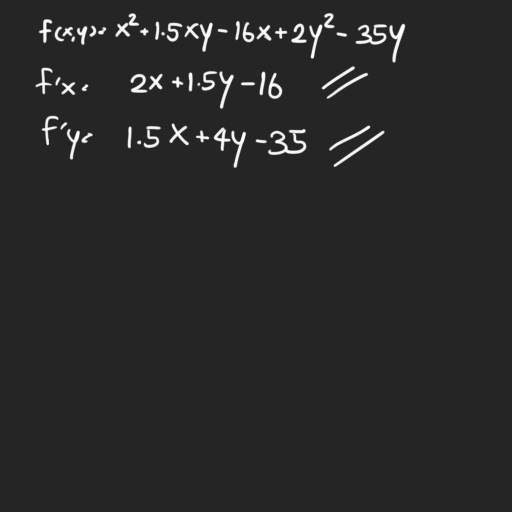 f(x,y)= x²+1.5xy-16x+2y²-35y
f'x= 2x+1.5y-16 //
f'y= 1.5x+4y-35 //